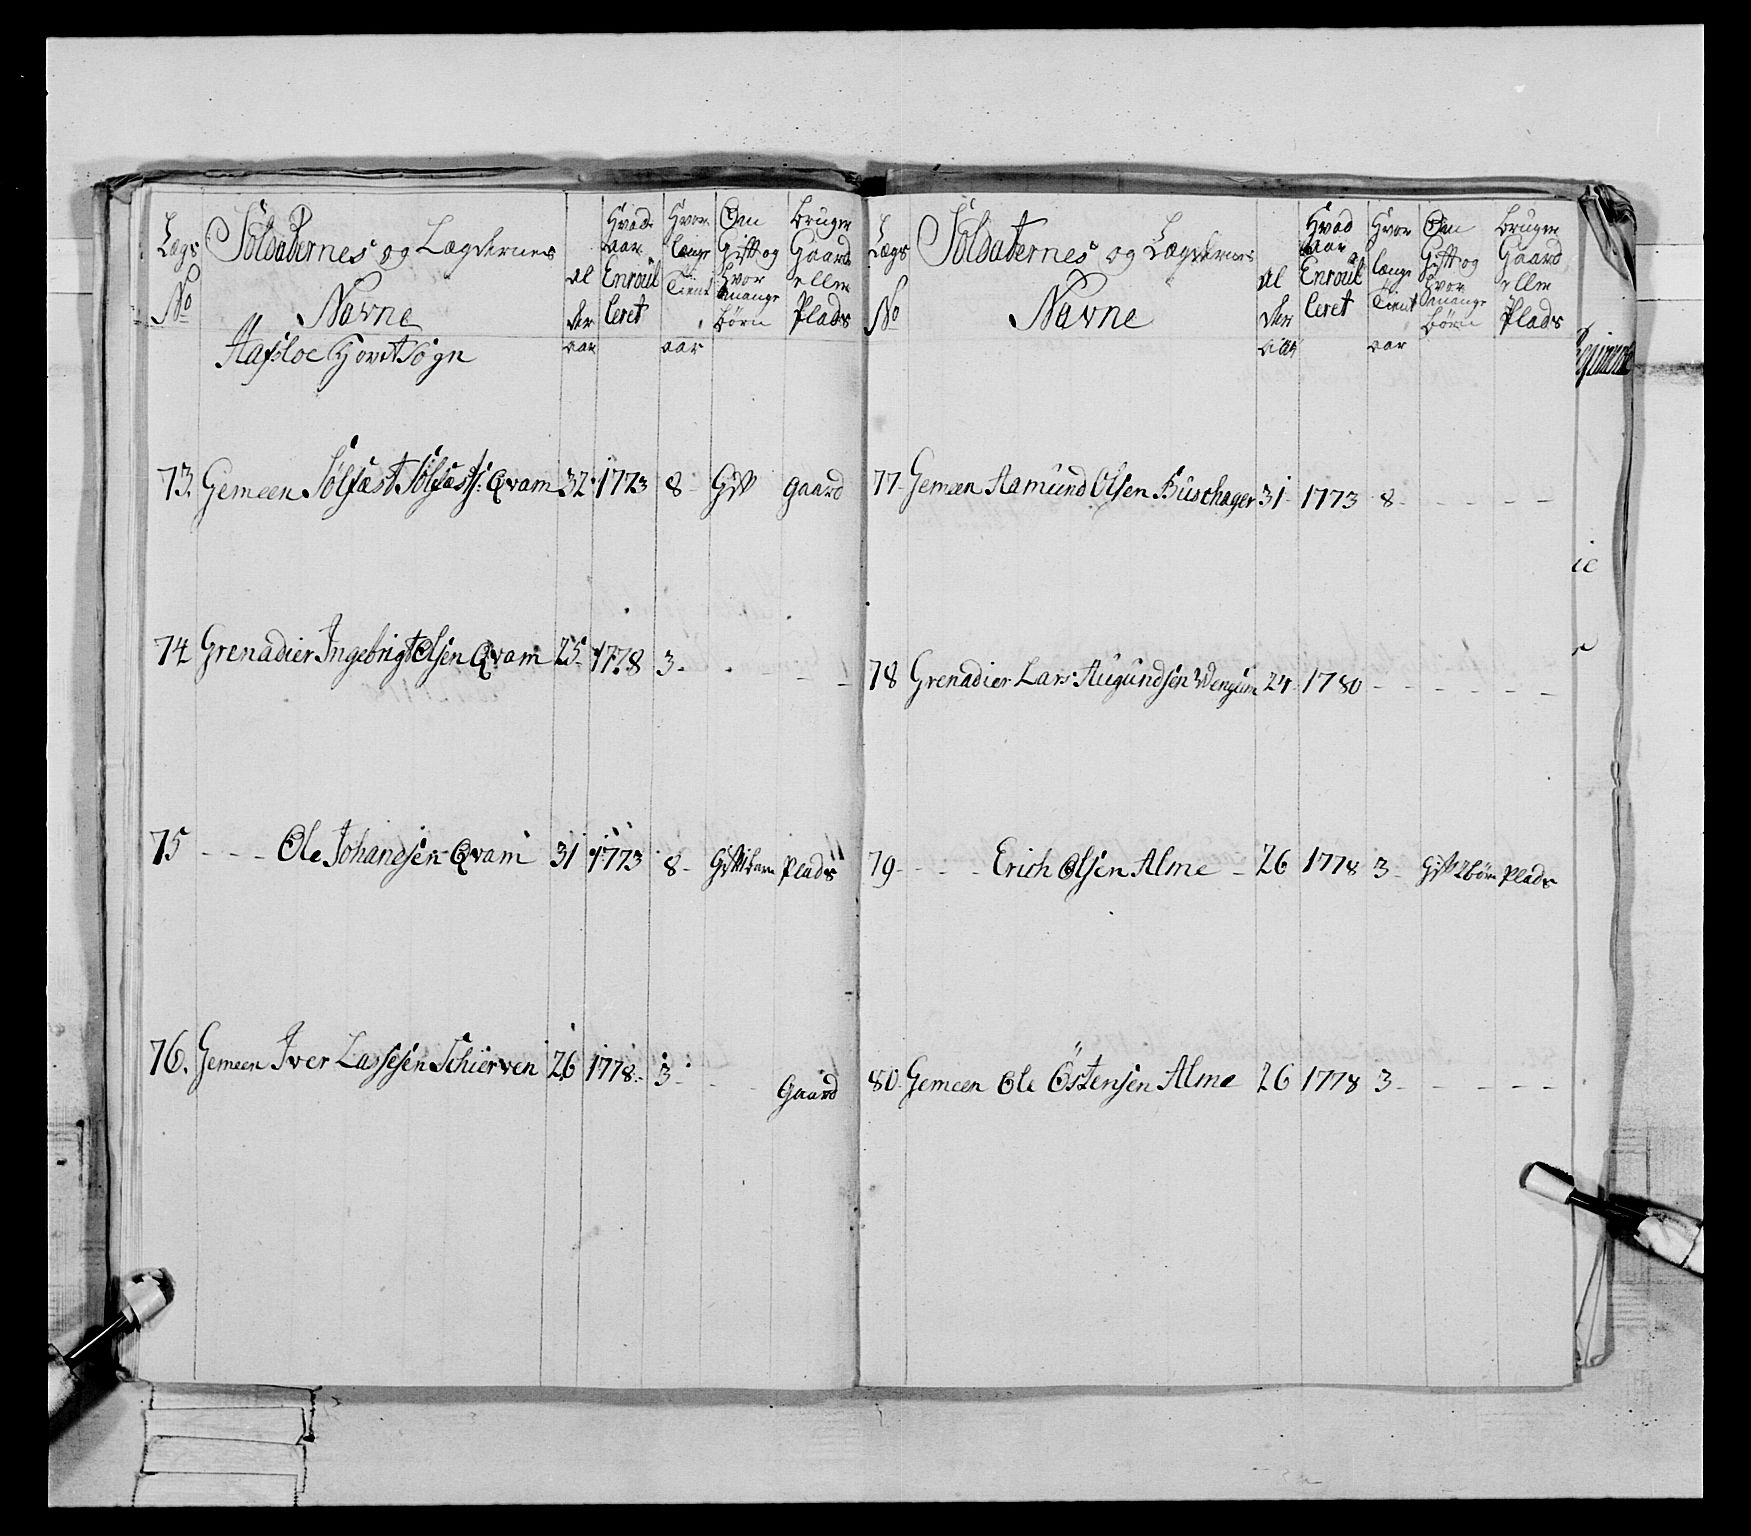 Lægs No
Soldaternes og Lægdernes Navne
Alder aar
Hvad aar Enroulleret
Hvor længe Tient aar
Om Gift og hvor mange børn
bruger Gaard eller Plads
Hovet Sogn
73. Gemeen Sølfæst Sølfæsts: Qvam 32 1773 8 - Gift gaard
74 Grenadier Ingebrigt Olsen Qvam 25 1778 3 - - - -
75 - - - Ole Johandsen Qvam 31 1773 8 - Gift 1 barn Plads
76. Gemeen Iver Lassesen Schierven 26 1778 - 3 - - - Gaard
Lægs No
Soldaternes og Lægdernes Navne
Alder aar
Hvad aar Enroulleret
Hvor længe Tient aar
Om Gift og hvor mange børn
bruger Gaard eller Plads
77 Gemeen Aamund Olsen Buschager 31 - 1773 8 - - - - -
78 Grenadier Lars Augundsen Wengum 24 1780 - - - - - -
79 - - - - Erich Olsen Alme - 26 1778 3 - Gift 2 børn Plads
80 - Gemeen Ole Östensen Alme 26 1778 3 - - - - -